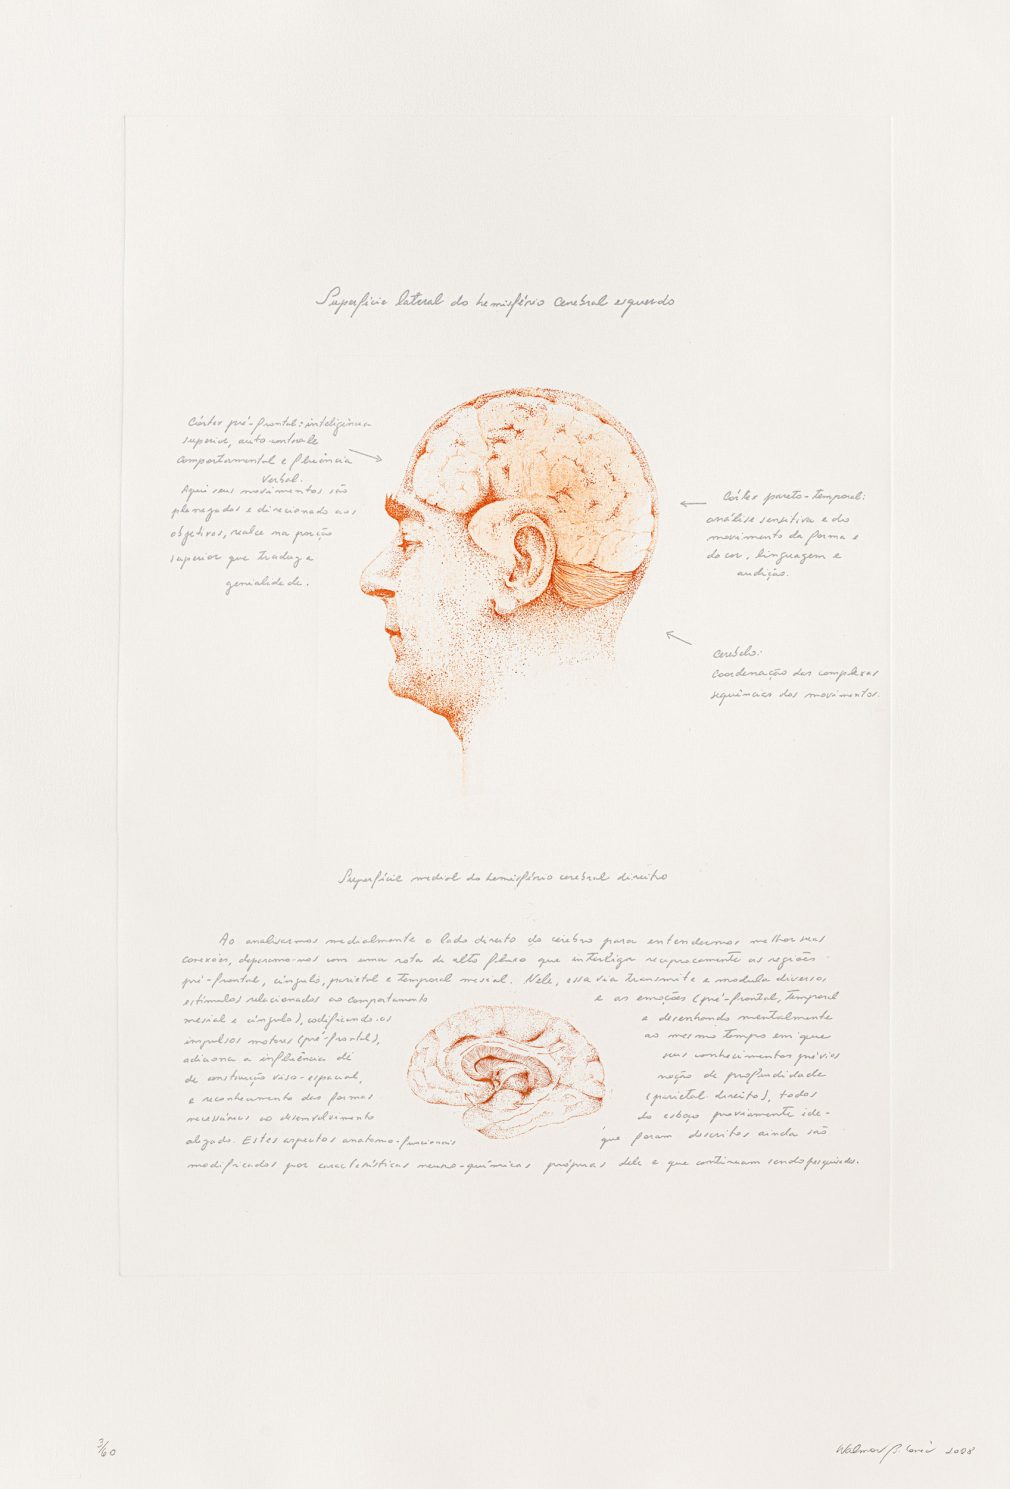 Superfície lateral do hemisfério cerebral esquerdo
Córtex pré-frontal: inteligência
superior, auto controle
comportamental e fluência
verbal.
Aqui seus movimentos são
planejados e direcionados aos
objetivos, realce na porção
superior que traduz a
genialidade.
Córtex pareto-temporal:
análise sensitiva e do
movimento da forma e
da cor, linguagem e
audição.
Cerebelo:
Coordenação das complexas
sequências dos movimentos.
Superfície medial do hemisfério cerebral direito
Ao analisarmos medialmente o lado direito do cérebro para entendermos melhor suas
conexões, deparamo-nos com uma rota de alto fluxo que interliga reciprocamente as regiões
pré-frontal, cíngulo, parietal e temporal mesial. Nele, essa via transmite e modula diversos
estímulos relacionados ao comportamento e as emoções (pré-frontal, temporal
mesial e cíngulo), codificando os e desenhando mentalmente
impulsos motores (pré-frontal), ao mesmo tempo em que
adiciona a influência de seus conhecimentos prévios
de construção viso-espacial, noção de profundidade
e reconhecimento das formas (parietal direito), todos
necessários ao desenvolvimento do esboço previamente ide-
alizado. Estes aspectos anatomo-funcionais que foram descritos ainda são
modificados por características neuro-químicas próprias dele e que continuam sendo pesquisadas.
3/60
2008